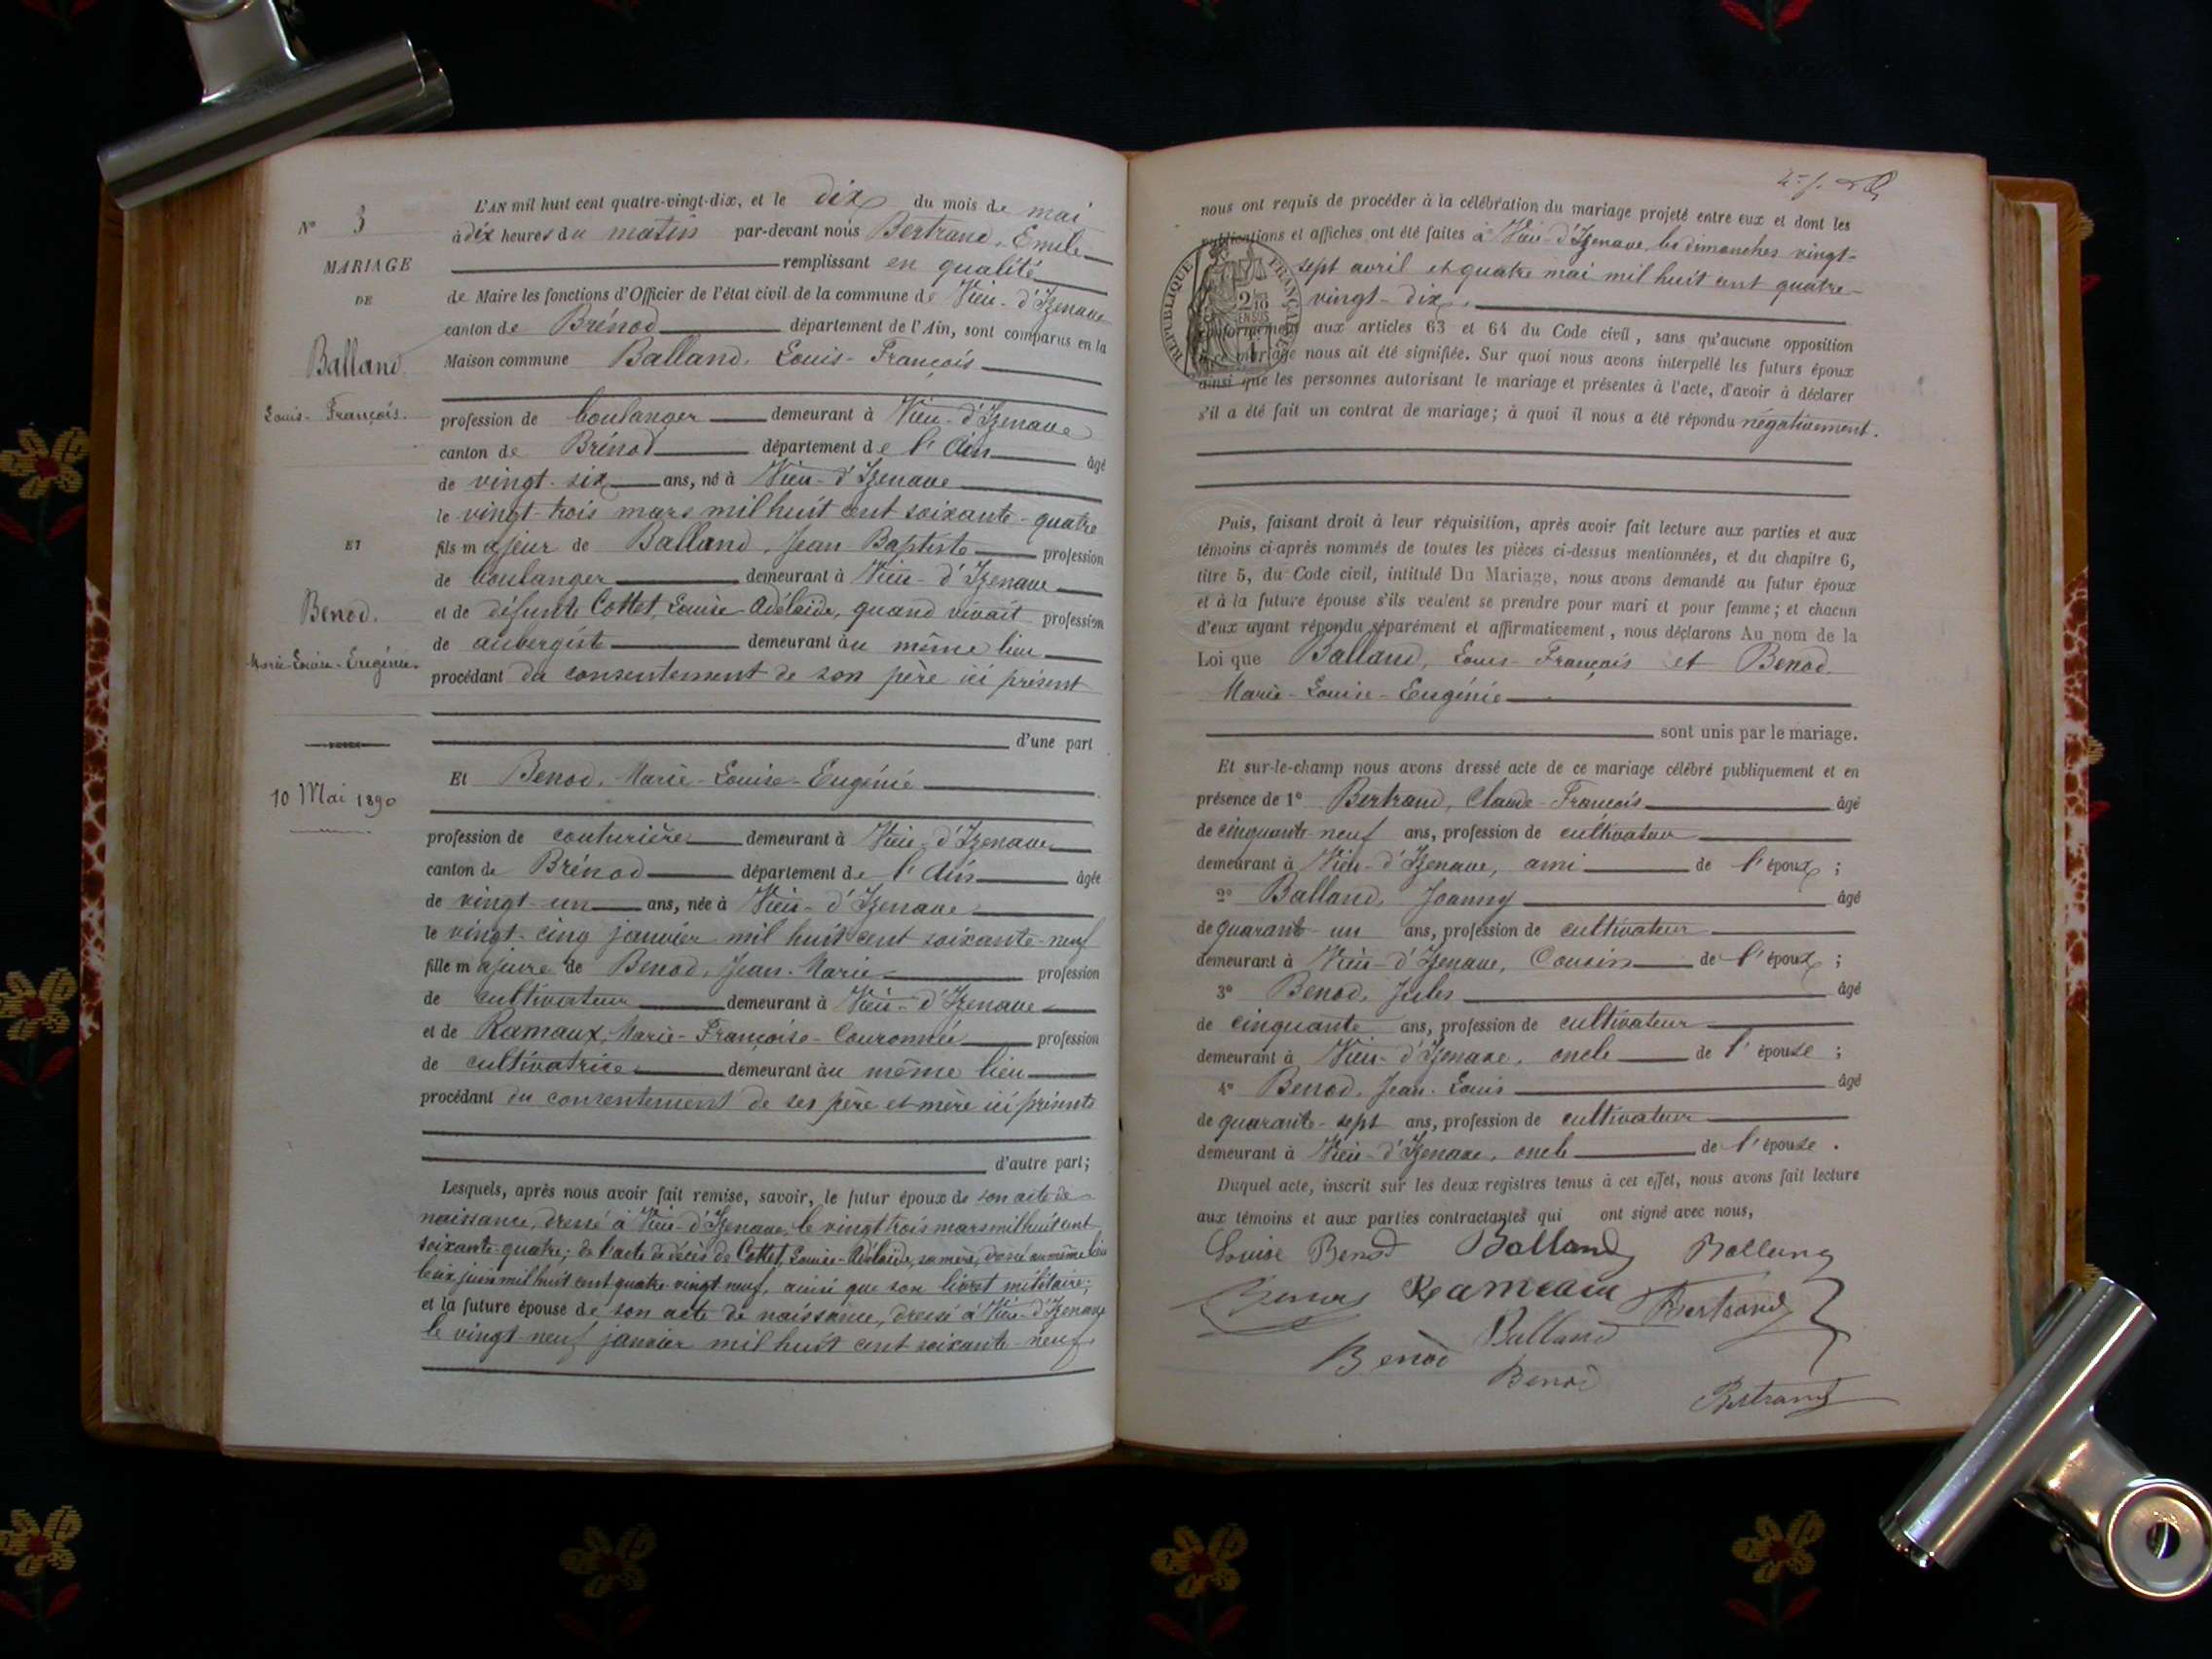 N° 3
MARIAGE
DE
Balland
Louis-François.
ET
Benod.
Marie-Louise-Eugénie
10 Mai 1890
L'AN mil huit cent quatre-vingt-dix, et le dix du mois de mai
à dix heures du matin par-devant nous Bertrand, Emile
remplissant en qualité
de Maire les fonctions d'Officier de l'état civil de la commune de Vieu-d'Izenave
canton de Brénod département de l'Ain, sont comparus en la
Maison commune Balland, Louis-François
profession de boulanger demeurant à Vieu-d'Izenave
canton de Brénod département de l'Ain âgé
de vingt-six ans, né à Vieu-d'Izenave
le vingt-trois mars mil huit cent soixante-quatre
fils majeur de Balland, Jean-Baptiste profession
de boulanger demeurant à Vieu-d'Izenave
et de défunte Cottet, Louise-Adélaïde, quand vivait profession
de aubergiste demeurant au même lieu
procédant du consentement de son père ici présent
d'une part
Et Benod, Marie-Louise-Eugénie
profession de couturière demeurant à Vieu-d'Izenave
canton de Brénod département de l'Ain âgée
de vingt-un ans, née à Vieu-d'Izenave
le vingt-cinq janvier mil huit cent soixante-neuf
fille majeure de Benod, Jean-Marie profession
de cultivateur demeurant à Vieu-d'Izenave
et de Ramaux, Marie-Françoise-Couronnée profession
de cultivatrice demeurant au même lieu
procédant du consentement de ses père et mère ici présents
d'autre part;
Lesquels, après nous avoir fait remise, savoir, le futur époux de son acte de
naissance, dressé à Vieu-d'Izenave, le vingt trois mars mil huit cent
soixante-quatre; de l'acte de décès de Cottet, Louise-Adélaïde, sa mère, dressé au même lieu
le six juin mil huit cent quatre-vingt neuf, ainsi que son livret militaire;
et la future épouse de son acte de naissance, dressé à Vieu-d'Izenave
le vingt-neuf janvier mil huit cent soixante-neuf
nous ont requis de procéder à la célébration du mariage projeté entre eux et dont les
publications et affiches ont été faites à Vieu-d'Izenave, les dimanches vingt-
sept avril et quatre mai mil huit cent quatre-
vingt-dix,
RÉPUBLIQUE FRANÇAISE
conformément aux articles 63 et 64 du Code civil, sans qu'aucune opposition
à ce mariage nous ait été signifiée. Sur quoi nous avons interpellé les futurs époux
ainsi que les personnes autorisant le mariage et présentes à l'acte, d'avoir à déclarer
s'il a été fait un contrat de mariage; à quoi il nous a été répondu négativement.
Puis, faisant droit à leur réquisition, après avoir fait lecture aux parties et aux
témoins ci-après nommés de toutes les pièces ci-dessus mentionnées, et du chapitre 6,
titre 5, du Code civil, intitulé Du Mariage, nous avons demandé au futur époux
et à la future épouse s'ils veulent se prendre pour mari et pour femme; et chacun
d'eux ayant répondu séparément et affirmativement, nous déclarons Au nom de la
Loi que Balland, Louis-François et Benod,
Marie-Louise-Eugénie
sont unis par le mariage.
Et sur-le-champ nous avons dressé acte de ce mariage célébré publiquement et en
présence de 1° Bertrand, Claude-François âgé
de cinquante-neuf ans, profession de cultivateur
demeurant à Vieu-d'Izenave, ami de l'époux;
2° Balland, Joanny âgé
de quarante-un ans, profession de cultivateur
demeurant à Vieu-d'Izenave, Cousin de l'époux;
3° Benod, Jules âgé
de cinquante ans, profession de cultivateur
demeurant à Vieu-d'Izenave, oncle de l'épouse;
4° Benod, Jean-Louis âgé
de quarante-sept ans, profession de cultivateur
demeurant à Vieu-d'Izenave, oncle de l'épouse.
Duquel acte, inscrit sur les deux registres tenus à cet effet, nous avons fait lecture
aux témoins et aux parties contractantes qui ont signé avec nous,
Louise Benod Balland Balland
Benod Rameaux Bertrand
Benod Balland
Benod
Bertrand